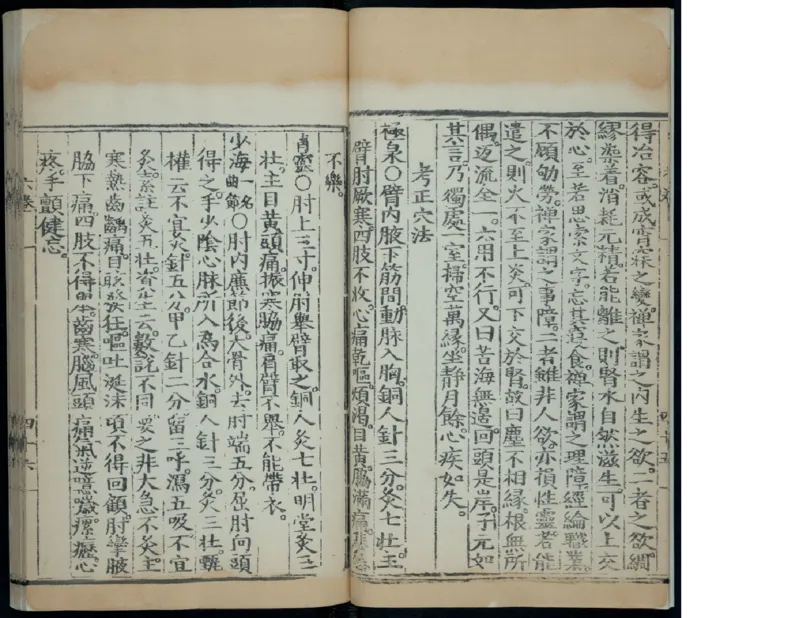 得冶容或成宵寐之變禪家謂之內生之欲二者之欲綢
繆染着消耗元精若能離之則腎水自然滋生可以上交
於心至若思索文字忘其寢食禪家謂之理障經綸職業
不顧劬勞禪家謂之事障二者雖非人欲亦損性靈若能
遣之則火不至上炎可下交於腎故曰塵不相緣根無所
偶返流全一六用不行又曰苦海無邊回頭是岸子元如
其言乃獨處一室掃空萬緣坐靜月餘心疾如失
考正穴法
極泉〇臂內腋下筋間動脉入胸銅人針三分灸七壯主
臂肘厥寒四肢不收心痛乾嘔煩渴目黃脇滿痛悲愁
不樂
青靈〇肘上三寸伸肘舉臂取之銅人灸七壯明堂灸三
壯主目黃頭痛振寒脇痛肩臂不舉不能帶衣
少海一名曲節〇肘內廉節後大骨外去肘端五分屈肘向頭
得之手少陰心脉所入為合水銅人針三分灸三壯甄
權云不宜灸針五分甲乙針二分留三呼瀉五吸不宜
灸素註灸五壯資生云數說不同要之非大急不灸主
寒熱齒齲痛目眩發狂嘔吐涎沫項不得回顧肘攣腋
脇下痛四肢不得舉齒寒腦風頭痛氣逆噫噦瘰癧心
疼手顫健忘
六卷
四十六
四十五